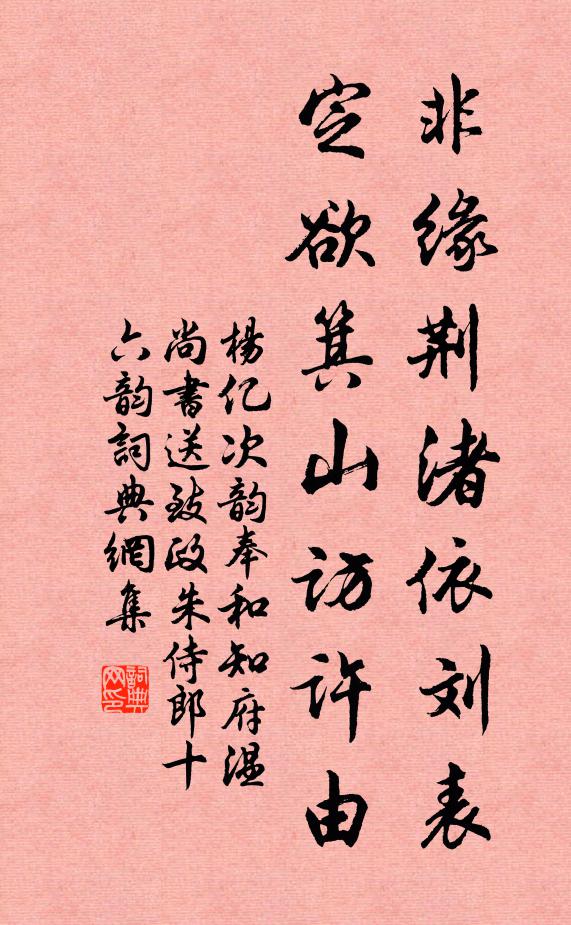 非缘荆渚依刘表
定欲箕山访许由
楊亿次韵奉和知府温
尚書送致政朱侍郎十
六韵詞典網集
詞典
网印